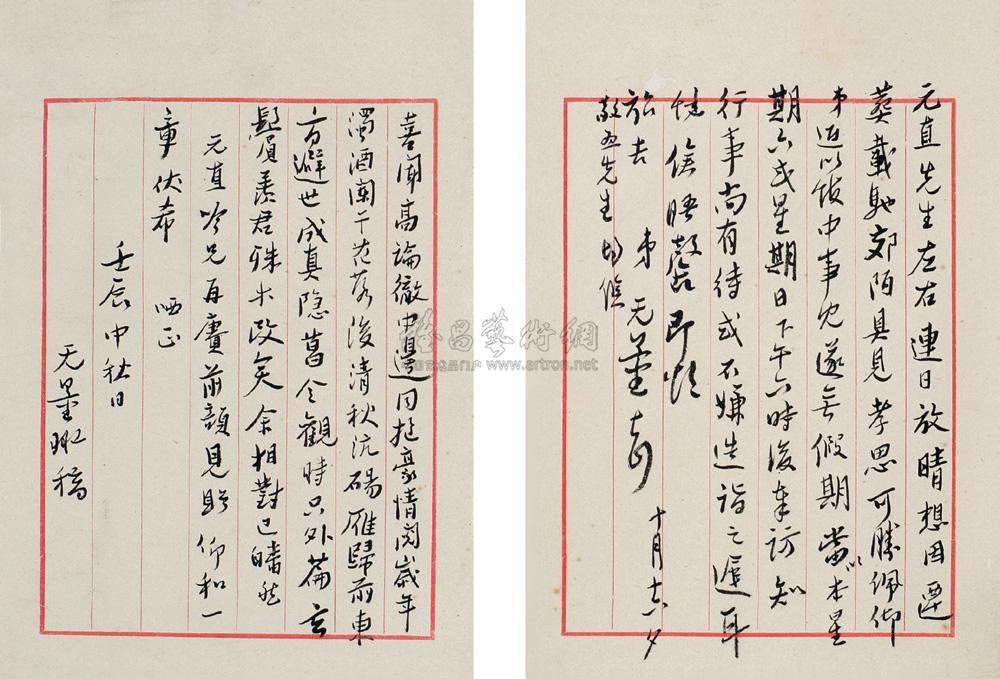 元直先生左右連日放晴想因遷
葬載馳郊陌具見孝思可勝佩仰
弟近以館中事冗遂無假期當以本星
期六或星期日下午六時後奉訪知
行事尚有待或不嫌造詣之遲耳
餘俟晤罄即頌
旅吉 弟无量
敬五先生均候
十月十六夕
喜聞高論徹中邊同抱豪情閱歲年
濁酒闌干花落後清秋沆碭雁歸前東
方避世成真隱葛令觀時只外篇
鬚眉羨君殊未改矣余相對已皤然
元直吟兄再賡前韻見貽仰和一
章伏希 哂正
壬辰中秋日
无量 稿
雅昌藝術網
www.artron.net